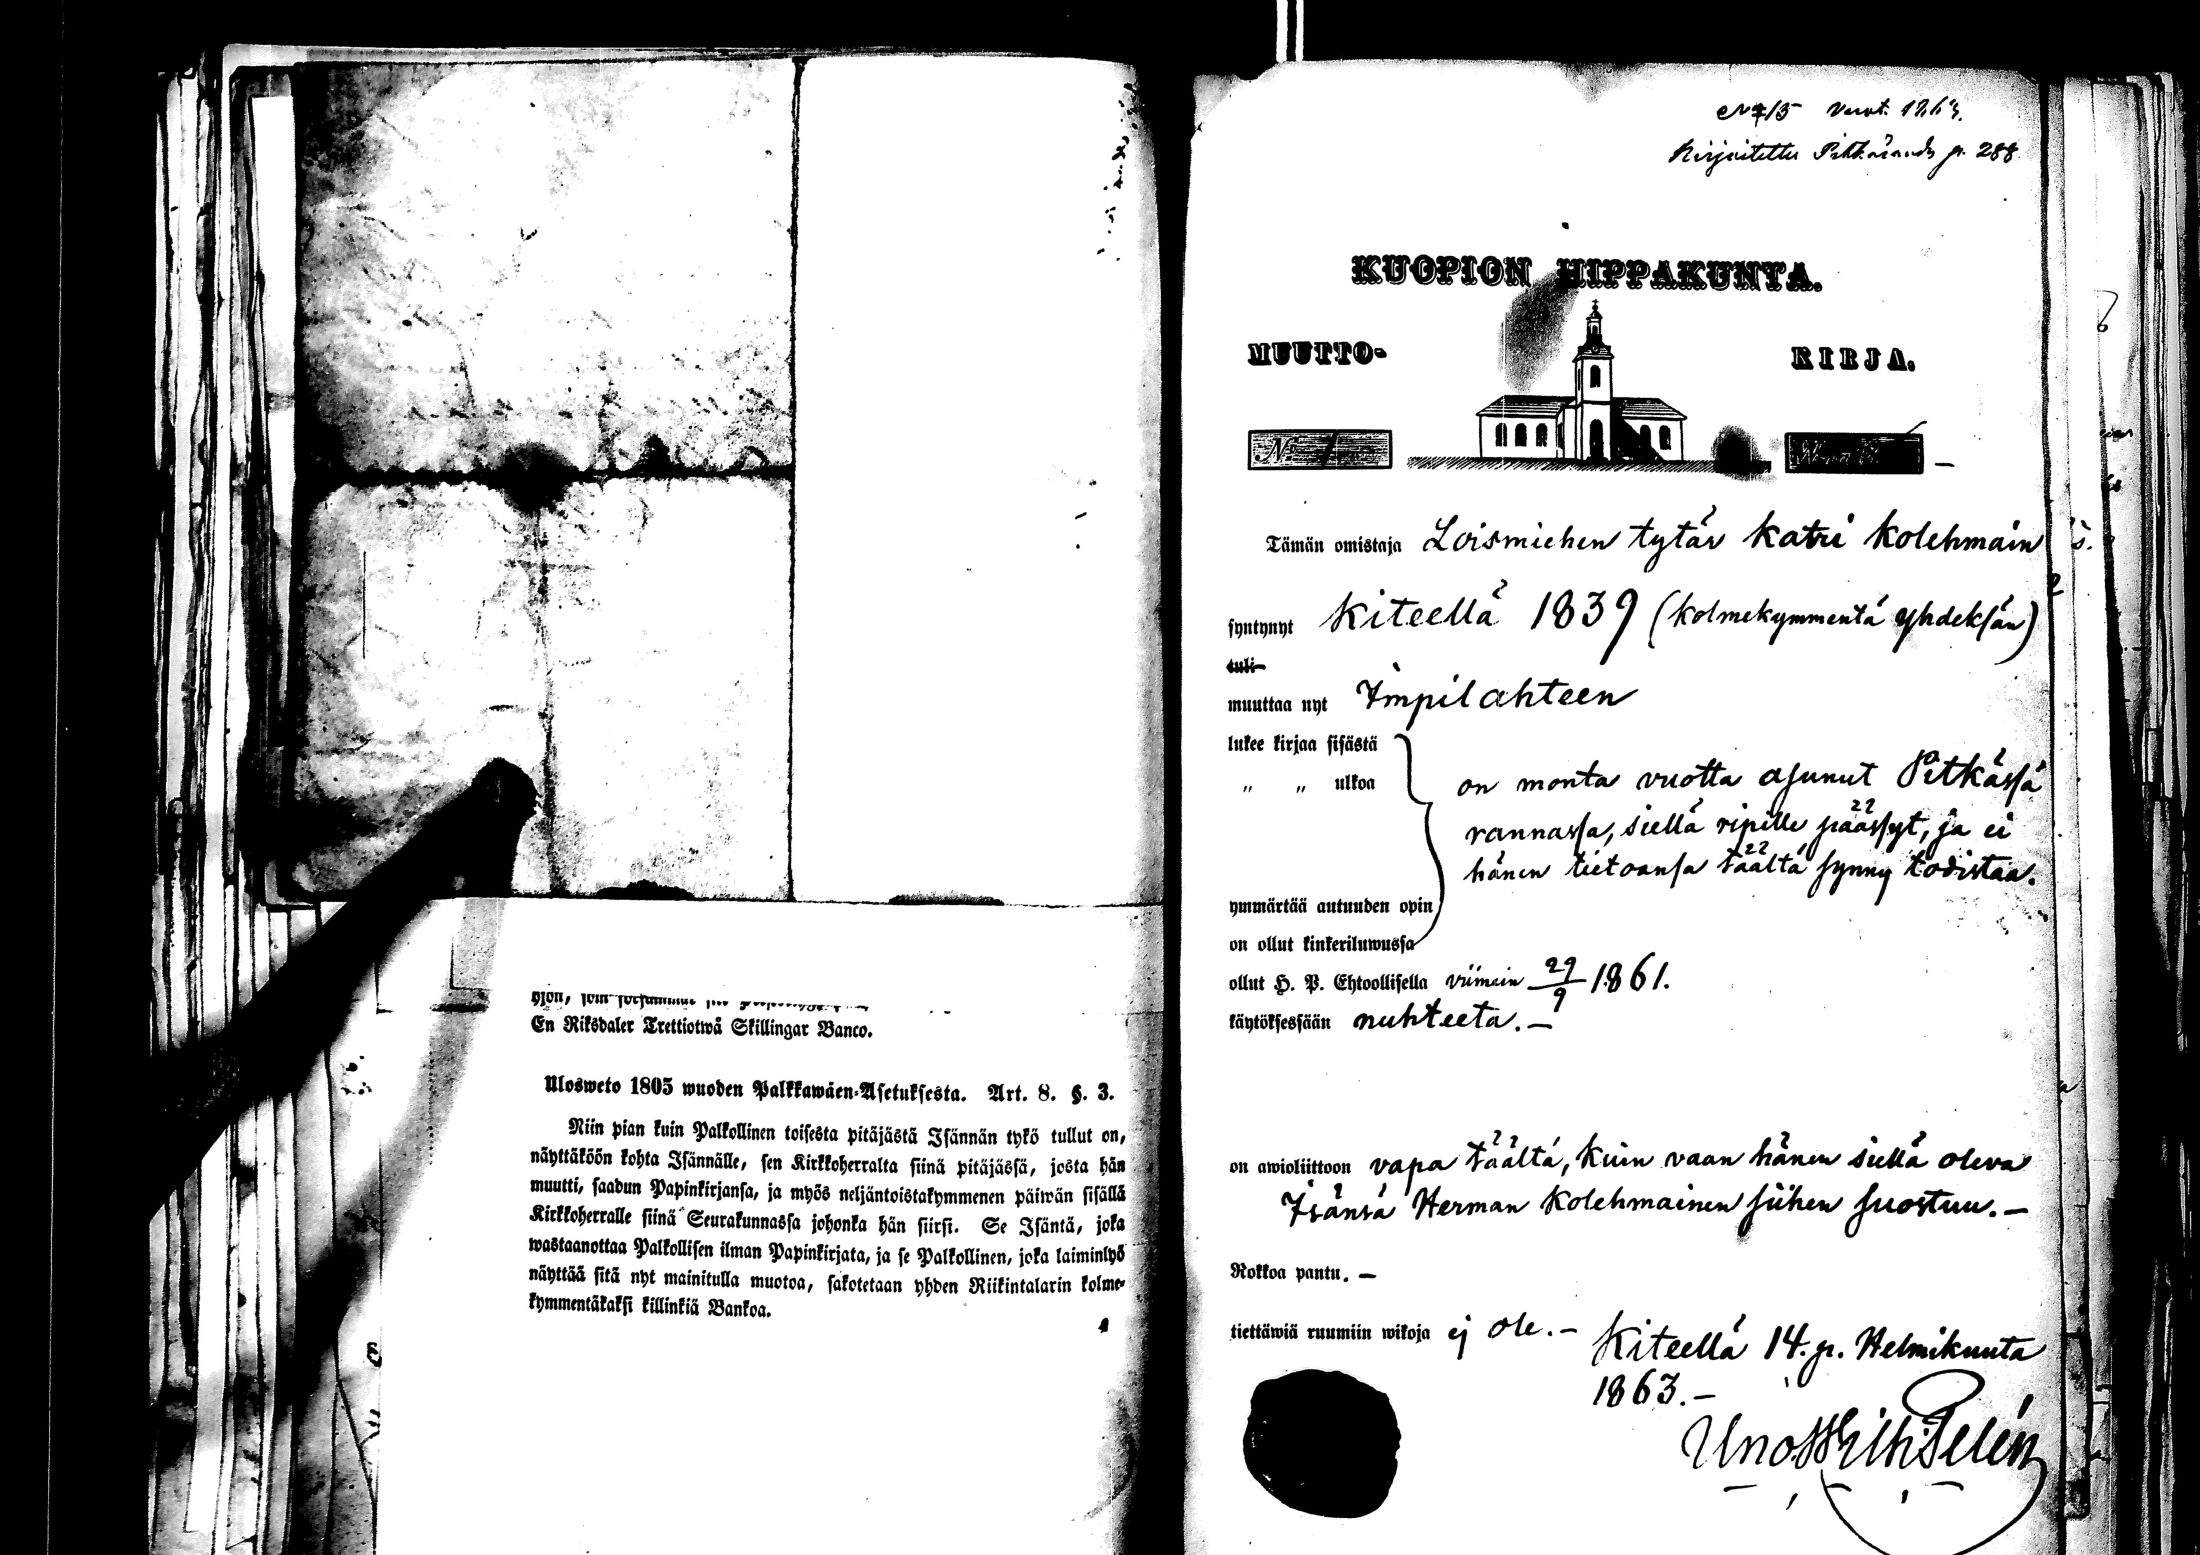 En Riksdaler Trettiotwå Skillingar Banco.
Ulosweto 1805 wuoden Palkkawäen-Asetuksesta. Art. 8. §. 3.
Niin pian kuin Palkollinen toisesta pitäjästä Isännän tykö tullut on,
näyttäköön kohta Isännälle, sen Kirkkoherralta siinä pitäjässä, josta hän
muutti, saadun Papinkirjansa, ja myös neljäntoistakymmenen päiwän sisällä
Kirkkoherralle siinä Seurakunnassa johonka hän siirsi. Se Isäntä, joka
wastaanottaa Palkollisen ilman Papinkirjata, ja se Palkollinen, joka laiminlyö
näyttää sitä nyt mainitulla muotoa, sakotetaan yhden Riikintalarin kolme-
kymmentäkaksi killinkiä Bankoa.
vuot. 1863.
Kirjoitettu Pitkäranda p. 288
KUOPION HIPPAKUNTA.
MUUTTO- KIRJA.
No 
Tämän omistaja Loismiehen tytär Katri Kolehmain
syntynyt Kiteellä 1839 (kolmekymmentä yhdeksän)
tuli
muuttaa nyt Impilahteen
lukee kirjaa sisästä
„ „ ulkoa on monta vuotta asunut Pitkässä
rannassa, siellä ripille päässyt, ja ei
hänen tietoansa täältä synny todistaa.
ymmärtää autuuden opin
on ollut kinkeriluwussa
ollut H. P. Ehtoollisella viimein 29/9 1861.
käytöksessään nuhteeta. —
on awioliittoon vapa täältä, kuin vaan hänen siellä oleva
Isänsä Herman Kolehmainen siihen suostuu. —
Rokkoa pantu. —
tiettäwiä ruumiin wikoja ej ole. —
Kiteellä 14. p. Helmikuuta
1863. —